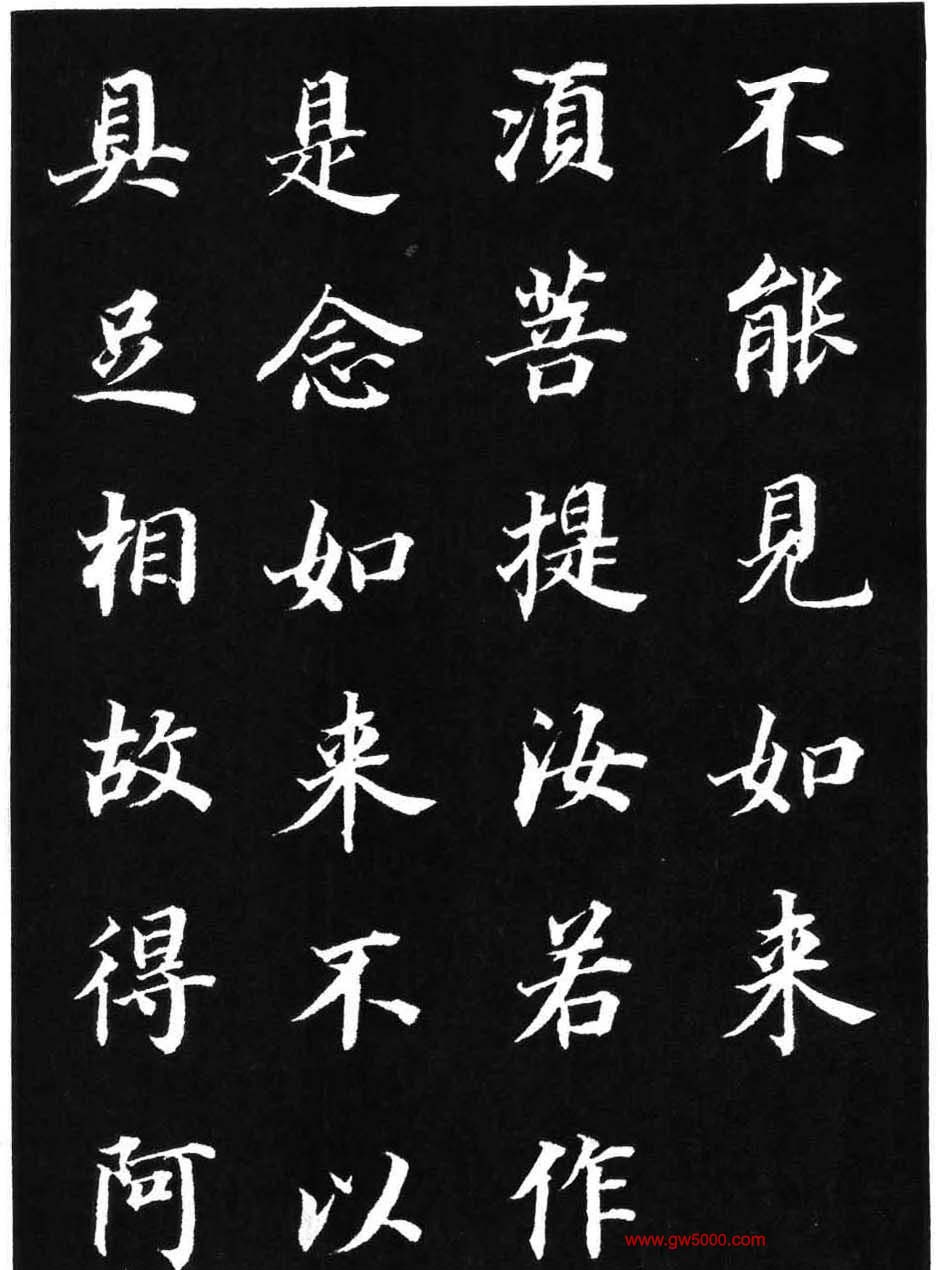 不能見如来
湏菩提汝若作
是念如来不以
具足相故得阿
www.gw5000.com